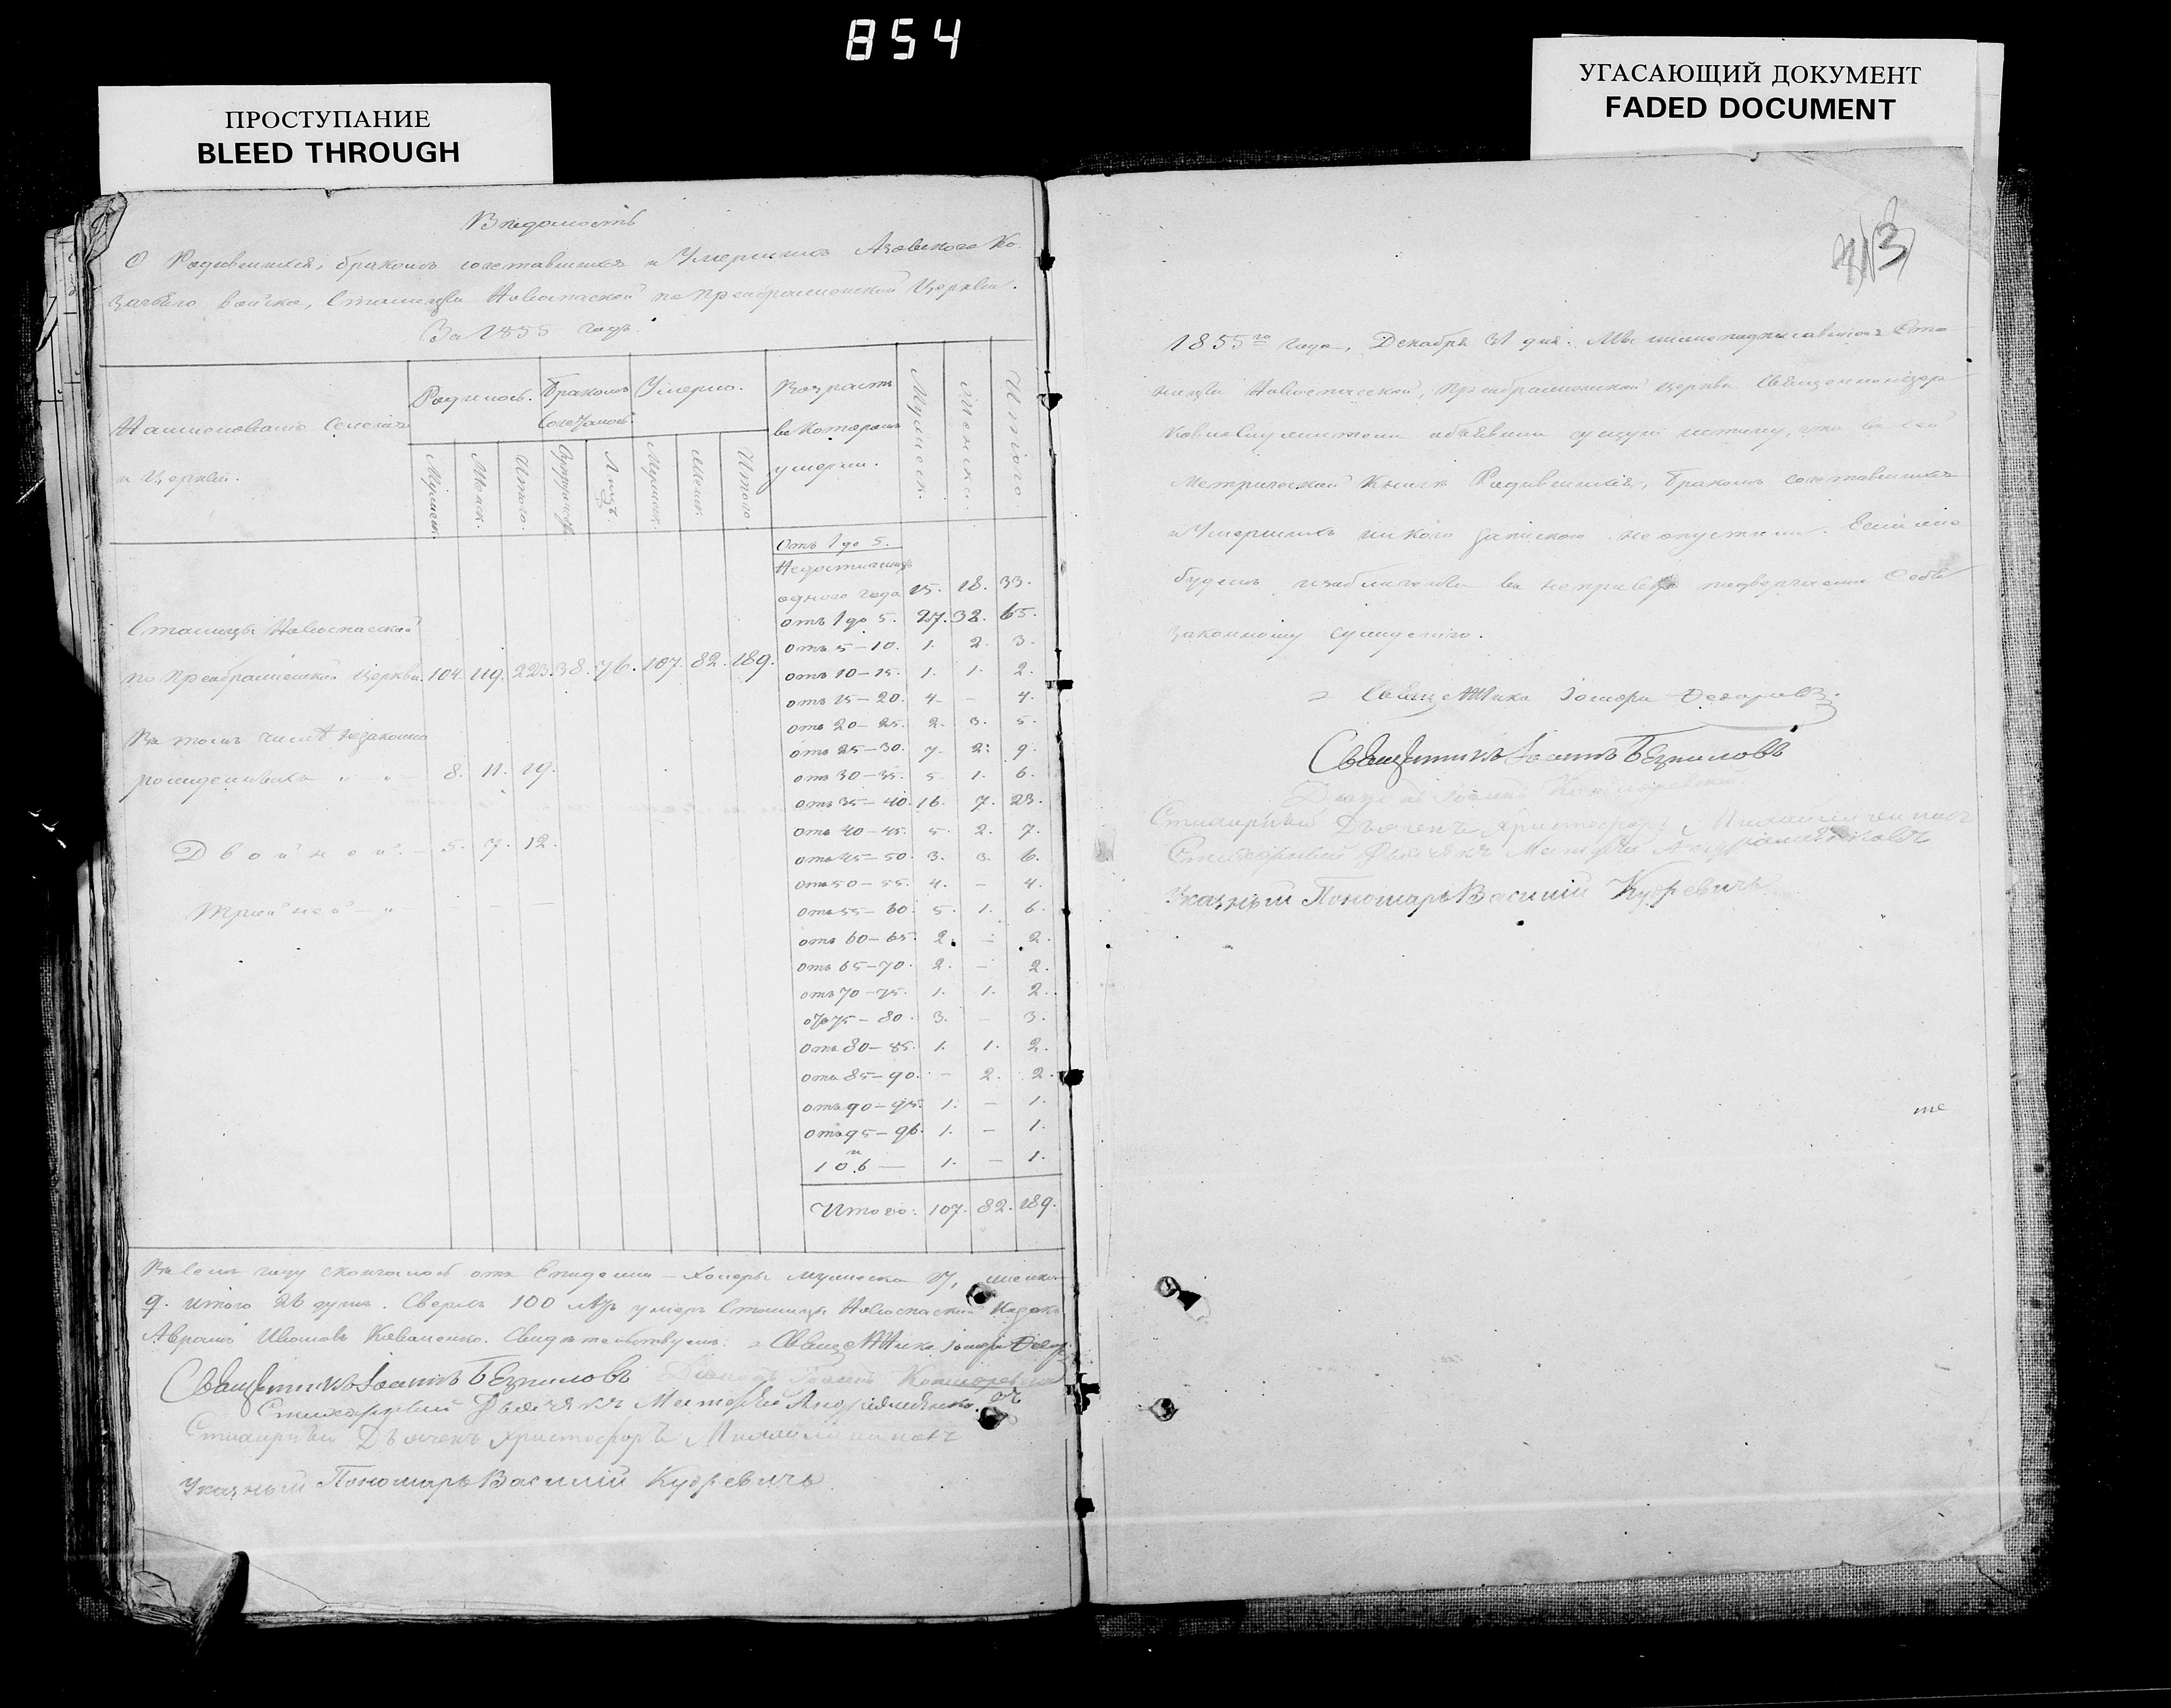 854
ПРОСТУПАНИЕ
BLEED THROUGH
УГАСАЮЩИЙ ДОКУМЕНТ
FADED DOCUMENT
Вѣдомость
О Родившихся, бракомъ сочетавшихся и Умершихъ Азовскаго Ка-
зачьяго войска, Станицы Новоспаской по Преображенской Церкви.
За 1855 годъ.
Наименованіе Селеній и Церквей.
Родилось.
Бракомъ Сочеталось.
Умерло.
Возрастъ въ которомъ умерли.
Мужеск.
Женска.
Итого
Мужеск.
Женск.
Итого.
Супружеств.
Лицъ.
Мужеск.
Женск.
Итого.
Отъ 1 до 5.
Недостигшихъ
одного года 15. 18. 33.
отъ 1 до 5. 27. 38. 65.
отъ 5–10. 1. 2. 3.
отъ 10–15. 1. 1. 2.
отъ 15–20. 4. – 4.
отъ 20–25. 2. 3. 5.
отъ 25–30. 7. 2. 9.
отъ 30–35. 5. 1. 6.
отъ 35–40. 16. 7. 23.
отъ 40–45. 5. 2. 7.
отъ 45–50. 3. 3. 6.
отъ 50–55. 4. – 4.
отъ 55–60. 5. 1. 6.
отъ 60–65. 2. – 2.
отъ 65–70. 2. – 2.
отъ 70–75. 1. 1. 2.
отъ 75–80. 3. – 3.
отъ 80–85. 1. 1. 2.
отъ 85–90. – 2. 2.
отъ 90–95. 1. – 1.
отъ 95–96. 1. – 1.
и
106 — 1. – 1.
Итого: 107. 82. 189.
Станицы Новоспаской
по Преображенской Церкви. 104. 119. 223. 38. 76. 107. 82. 189.
Въ томъ числѣ незаконно
рожденныхъ " " – 8. 11. 19.
Двойней. – 5. 7. 12.
Тройней – " – – – –
Въ семъ году скончалось отъ Епидеміи – холеры мужеска 17, женска
9. итого 26 душъ. Сверхъ 100 лѣтъ умеръ Станицы Новоспаской Козакъ
Аврамъ Ивановъ Коваленко. Свидѣтельствуемъ:
Священникъ Іоаннъ Безпиловъ
Стихарный Дьячекъ Матѳей
Стихарный Дьячекъ Христофоръ
Указный Пономарь Василій Кудревичъ.
313
1855го года, Декабря 31 дня. Мы нижеподписавшіеся Ста-
ницы Новоспасской, Преображенской церкви Священноцерк-
овнослужители объявили сущую истину, что въ сей
Метрической Книгѣ Родившихся, бракомъ сочетавшихся
и Умершихъ никого запискою не опустили. Если же
будемъ изобличены въ неправдѣ подвергаемъ Себя
законному сужденію.
Священникъ Іоаннъ Безпиловъ
Стихарный Дьячекъ Христофоръ
Стихарный Дьячекъ Матѳей
Указный Пономарь Василій Кудревичъ
те